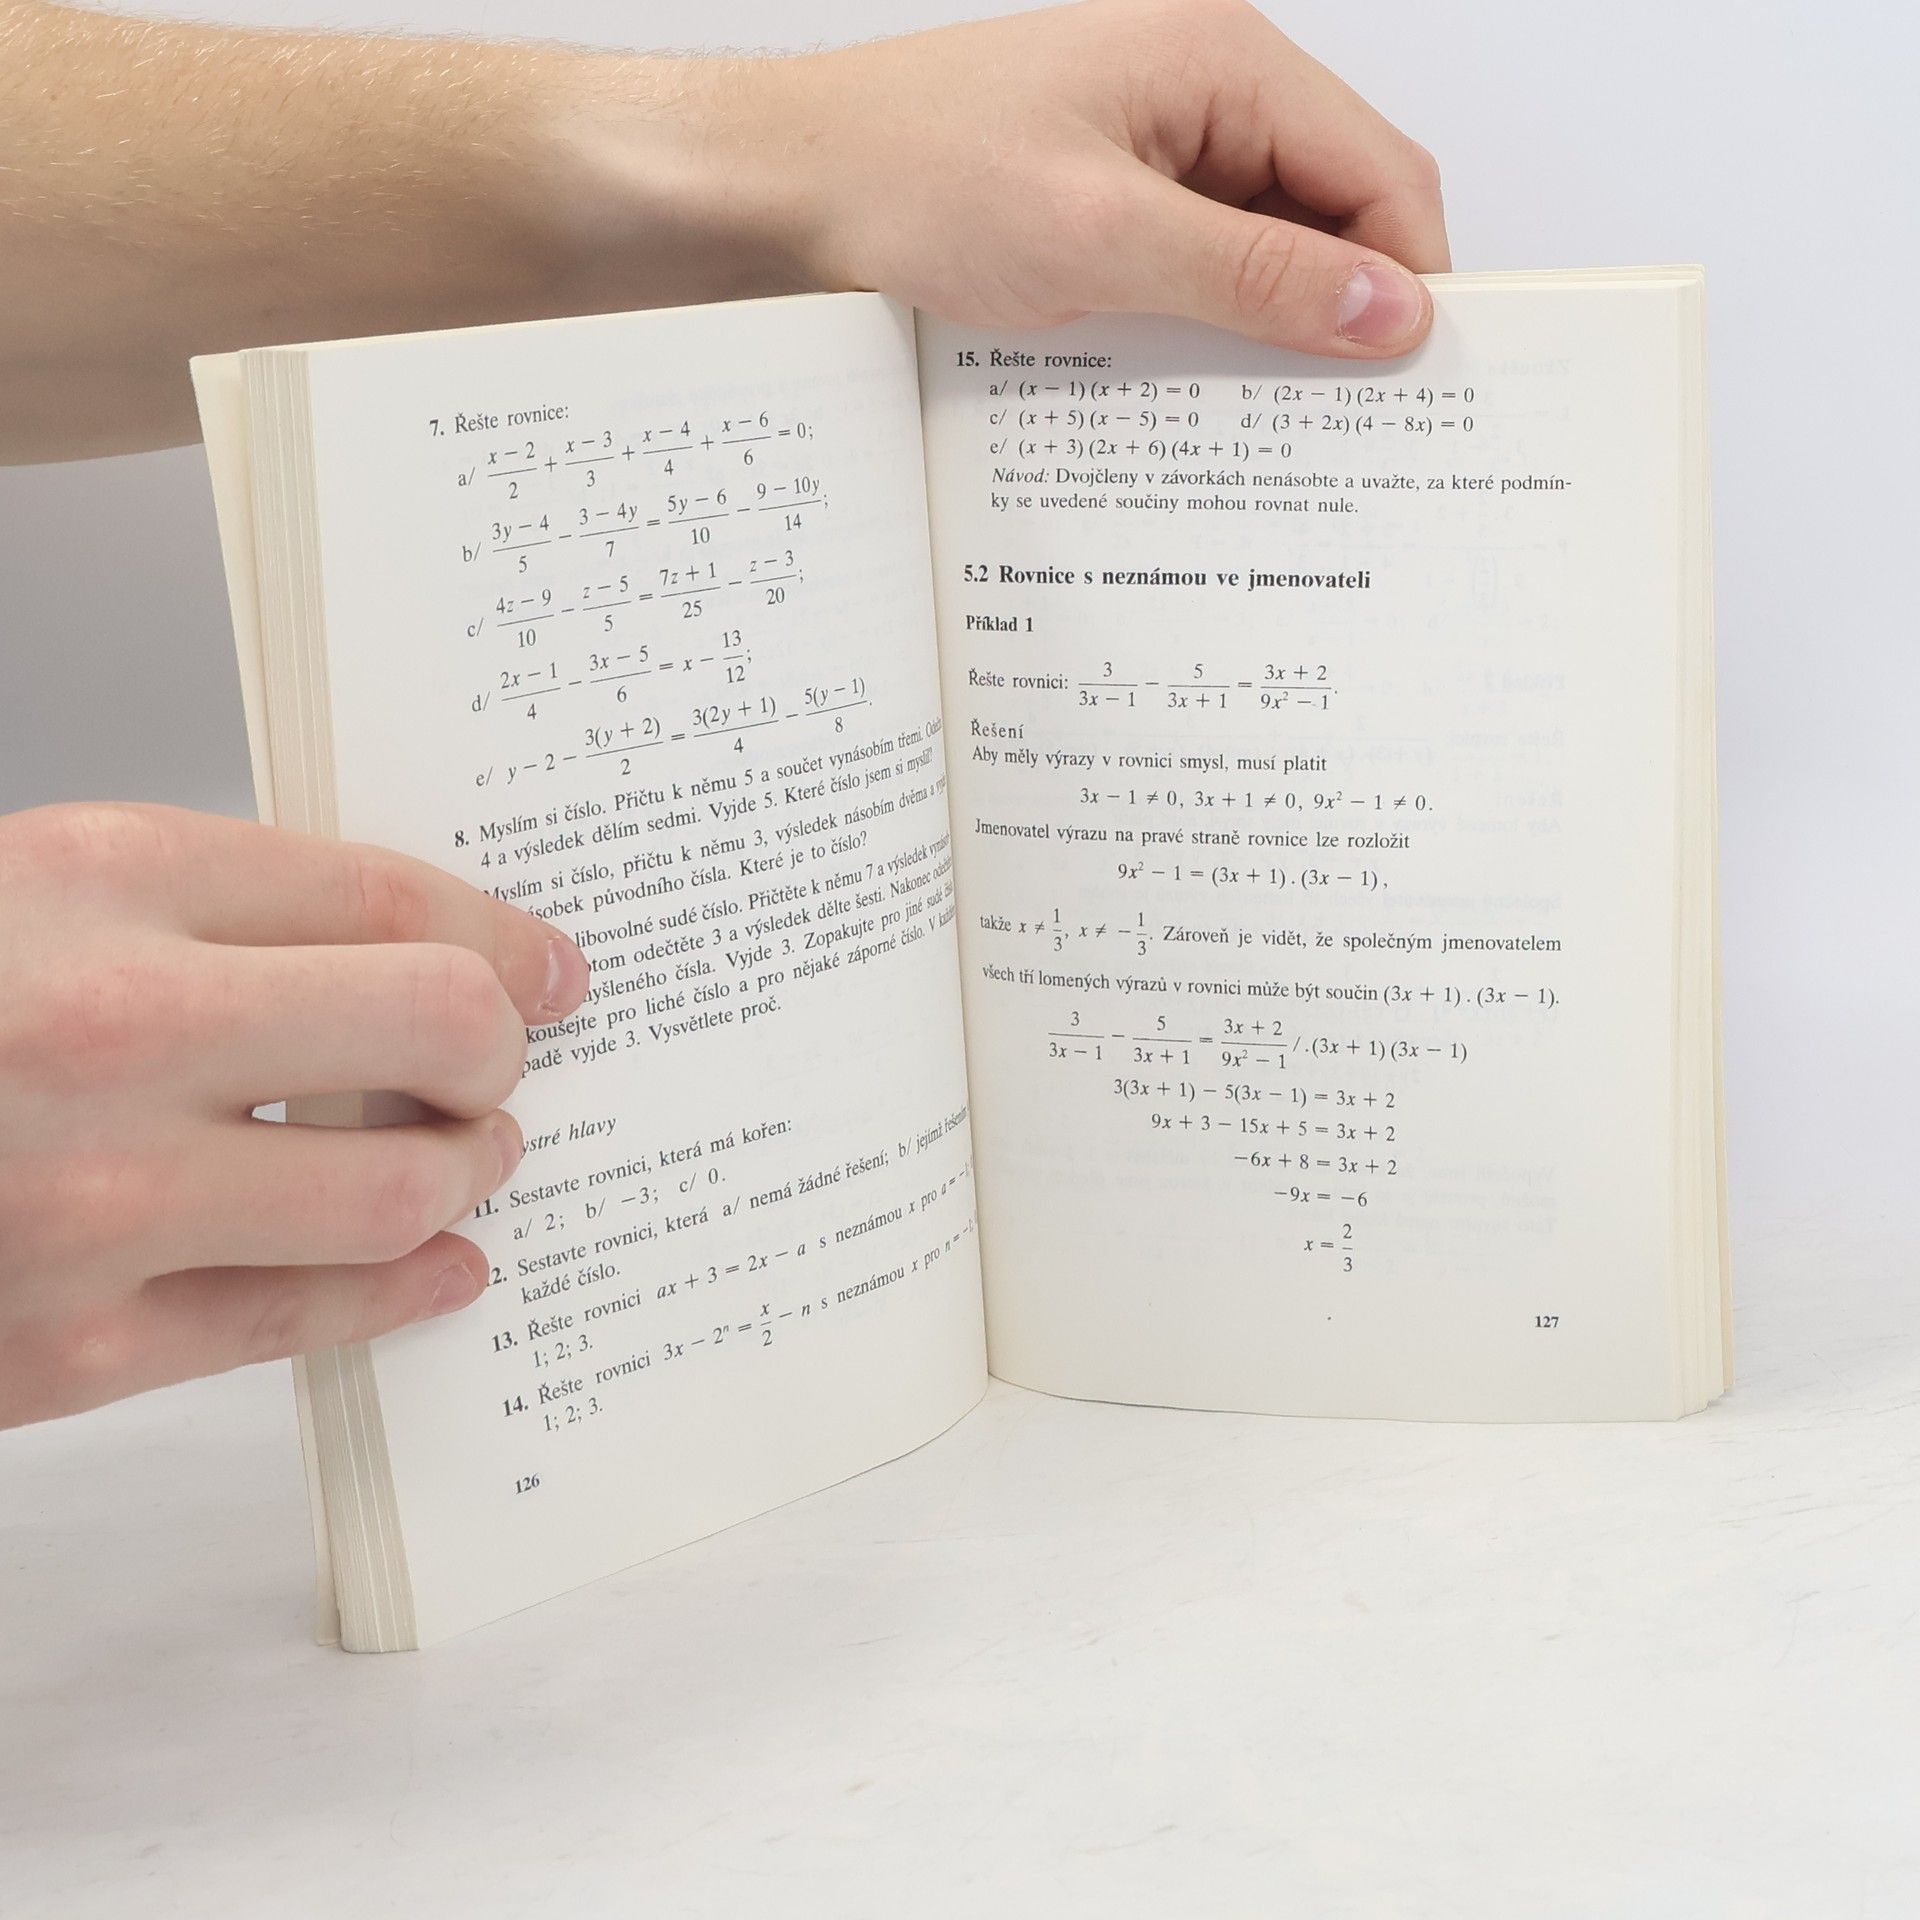 7. Řešte rovnice:
a/ (x − 2)/2 + (x − 3)/3 + (x − 4)/4 + (x − 6)/6 = 0;
b/ (3y − 4)/5 − (3 − 4y)/7 = (5y − 6)/10 − (9 − 10y)/14;
c/ (4z − 9)/10 − (z − 5)/5 = (7z + 1)/25 − (z − 3)/20;
d/ (2x − 1)/4 − (3x − 5)/6 = x − 13/12;
e/ y − 2 − 3(y + 2)/2 = 3(2y + 1)/4 − 5(y − 1)/8.
8. Myslím si číslo. Přičtu k němu 5 a součet vynásobím třemi.
4 a výsledek dělím sedmi. Vyjde 5. Které číslo jsem si myslil?
Myslím si číslo, přičtu k němu 3, výsledek násobím dvěma a
původního čísla. Které je to číslo?
libovolné sudé číslo. Přičtěte k němu 7 a výsledek
odečtěte 3 a výsledek dělte šesti. Nakonec
čísla. Vyjde 3. Zopakujte pro jiné sudé
pro liché číslo a pro nějaké záporné číslo. V
vyjde 3. Vysvětlete proč.
hlavy
11. Sestavte rovnici, která má kořen:
a/ 2; b/ −3; c/ 0.
Sestavte rovnici, která a/ nemá žádné řešení; b/ jejímž řešením
každé číslo.
13. Řešte rovnici ax + 3 = 2x − a s neznámou x pro a = −1;
1; 2; 3.
14. Řešte rovnici 3x − 2ⁿ = x/2 − n s neznámou x pro n = −1;
1; 2; 3.
126
15. Řešte rovnice:
a/ (x − 1)(x + 2) = 0 b/ (2x − 1)(2x + 4) = 0
c/ (x + 5)(x − 5) = 0 d/ (3 + 2x)(4 − 8x) = 0
e/ (x + 3)(2x + 6)(4x + 1) = 0
Návod: Dvojčleny v závorkách nenásobte a uvažte, za které podmín-
ky se uvedené součiny mohou rovnat nule.
5.2 Rovnice s neznámou ve jmenovateli
Příklad 1
Řešte rovnici: 3/(3x − 1) − 5/(3x + 1) = (3x + 2)/(9x² − 1).
Řešení
Aby měly výrazy v rovnici smysl, musí platit
3x − 1 ≠ 0, 3x + 1 ≠ 0, 9x² − 1 ≠ 0.
Jmenovatel výrazu na pravé straně rovnice lze rozložit
9x² − 1 = (3x + 1) . (3x − 1),
takže x ≠ 1/3, x ≠ −1/3. Zároveň je vidět, že společným jmenovatelem
všech tří lomených výrazů v rovnici může být součin (3x + 1) . (3x − 1).
3/(3x − 1) − 5/(3x + 1) = (3x + 2)/(9x² − 1) /.(3x + 1)(3x − 1)
3(3x + 1) − 5(3x − 1) = 3x + 2
9x + 3 − 15x + 5 = 3x + 2
−6x + 8 = 3x + 2
−9x = −6
x = 2/3
127